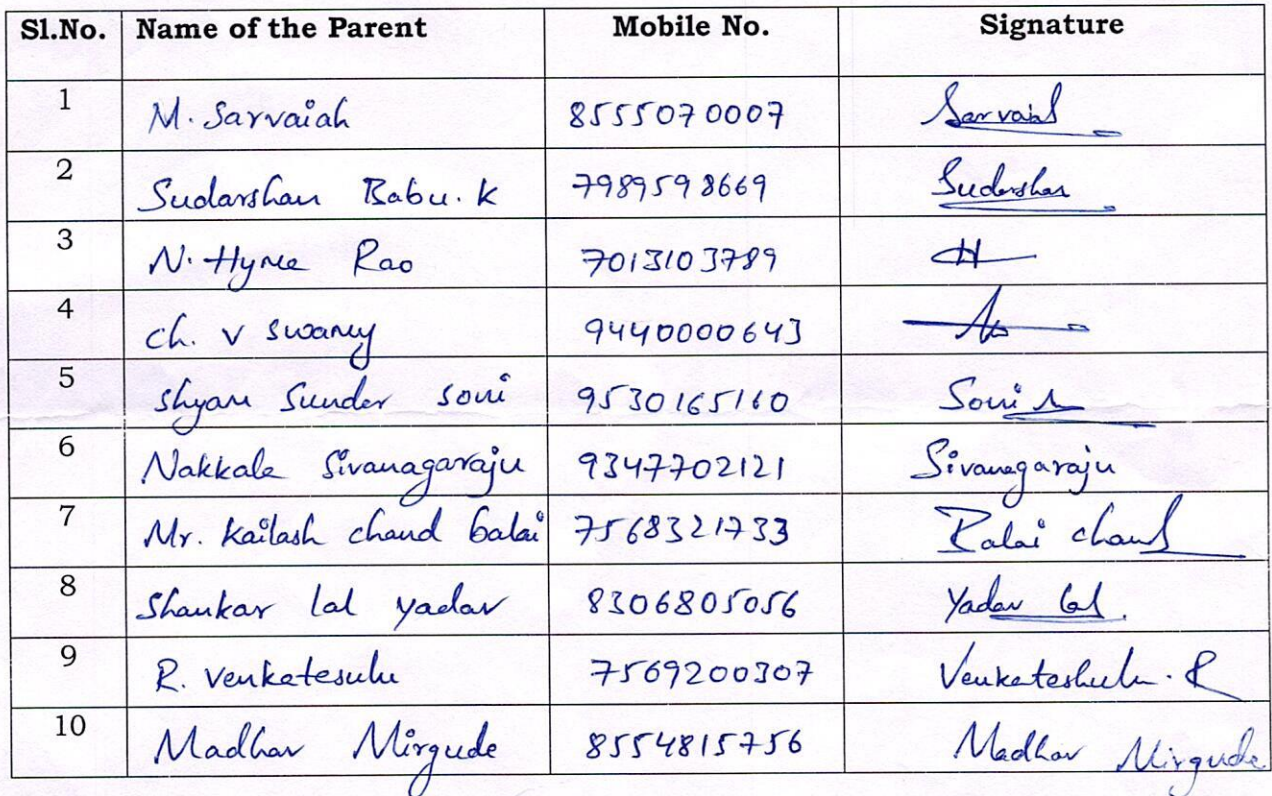 Sl.No. Name of the Parent Mobile No. Signature
1 M. Sarvaiah 8555070007 Sarvaiah
2 Sudarshan Babu. K 7989598669 Sudarshan
3 N. Hyma Rao 7013103789 H
4 ch. v swamy 9440000643
5 Shyam Sunder soni 9530165160 Soni
6 Nakkala Sivanagaraju 9347702121 Sivanagaraju
7 Mr. Kailash chand balai 7568321733 Balai chand
8 Shankar lal yadav 8306805056 Yadav lal
9 R. Venkatesulu 7569200307 Venkateshulu. R
10 Madhav Mirgude 8554815756 Madhav Mirgude